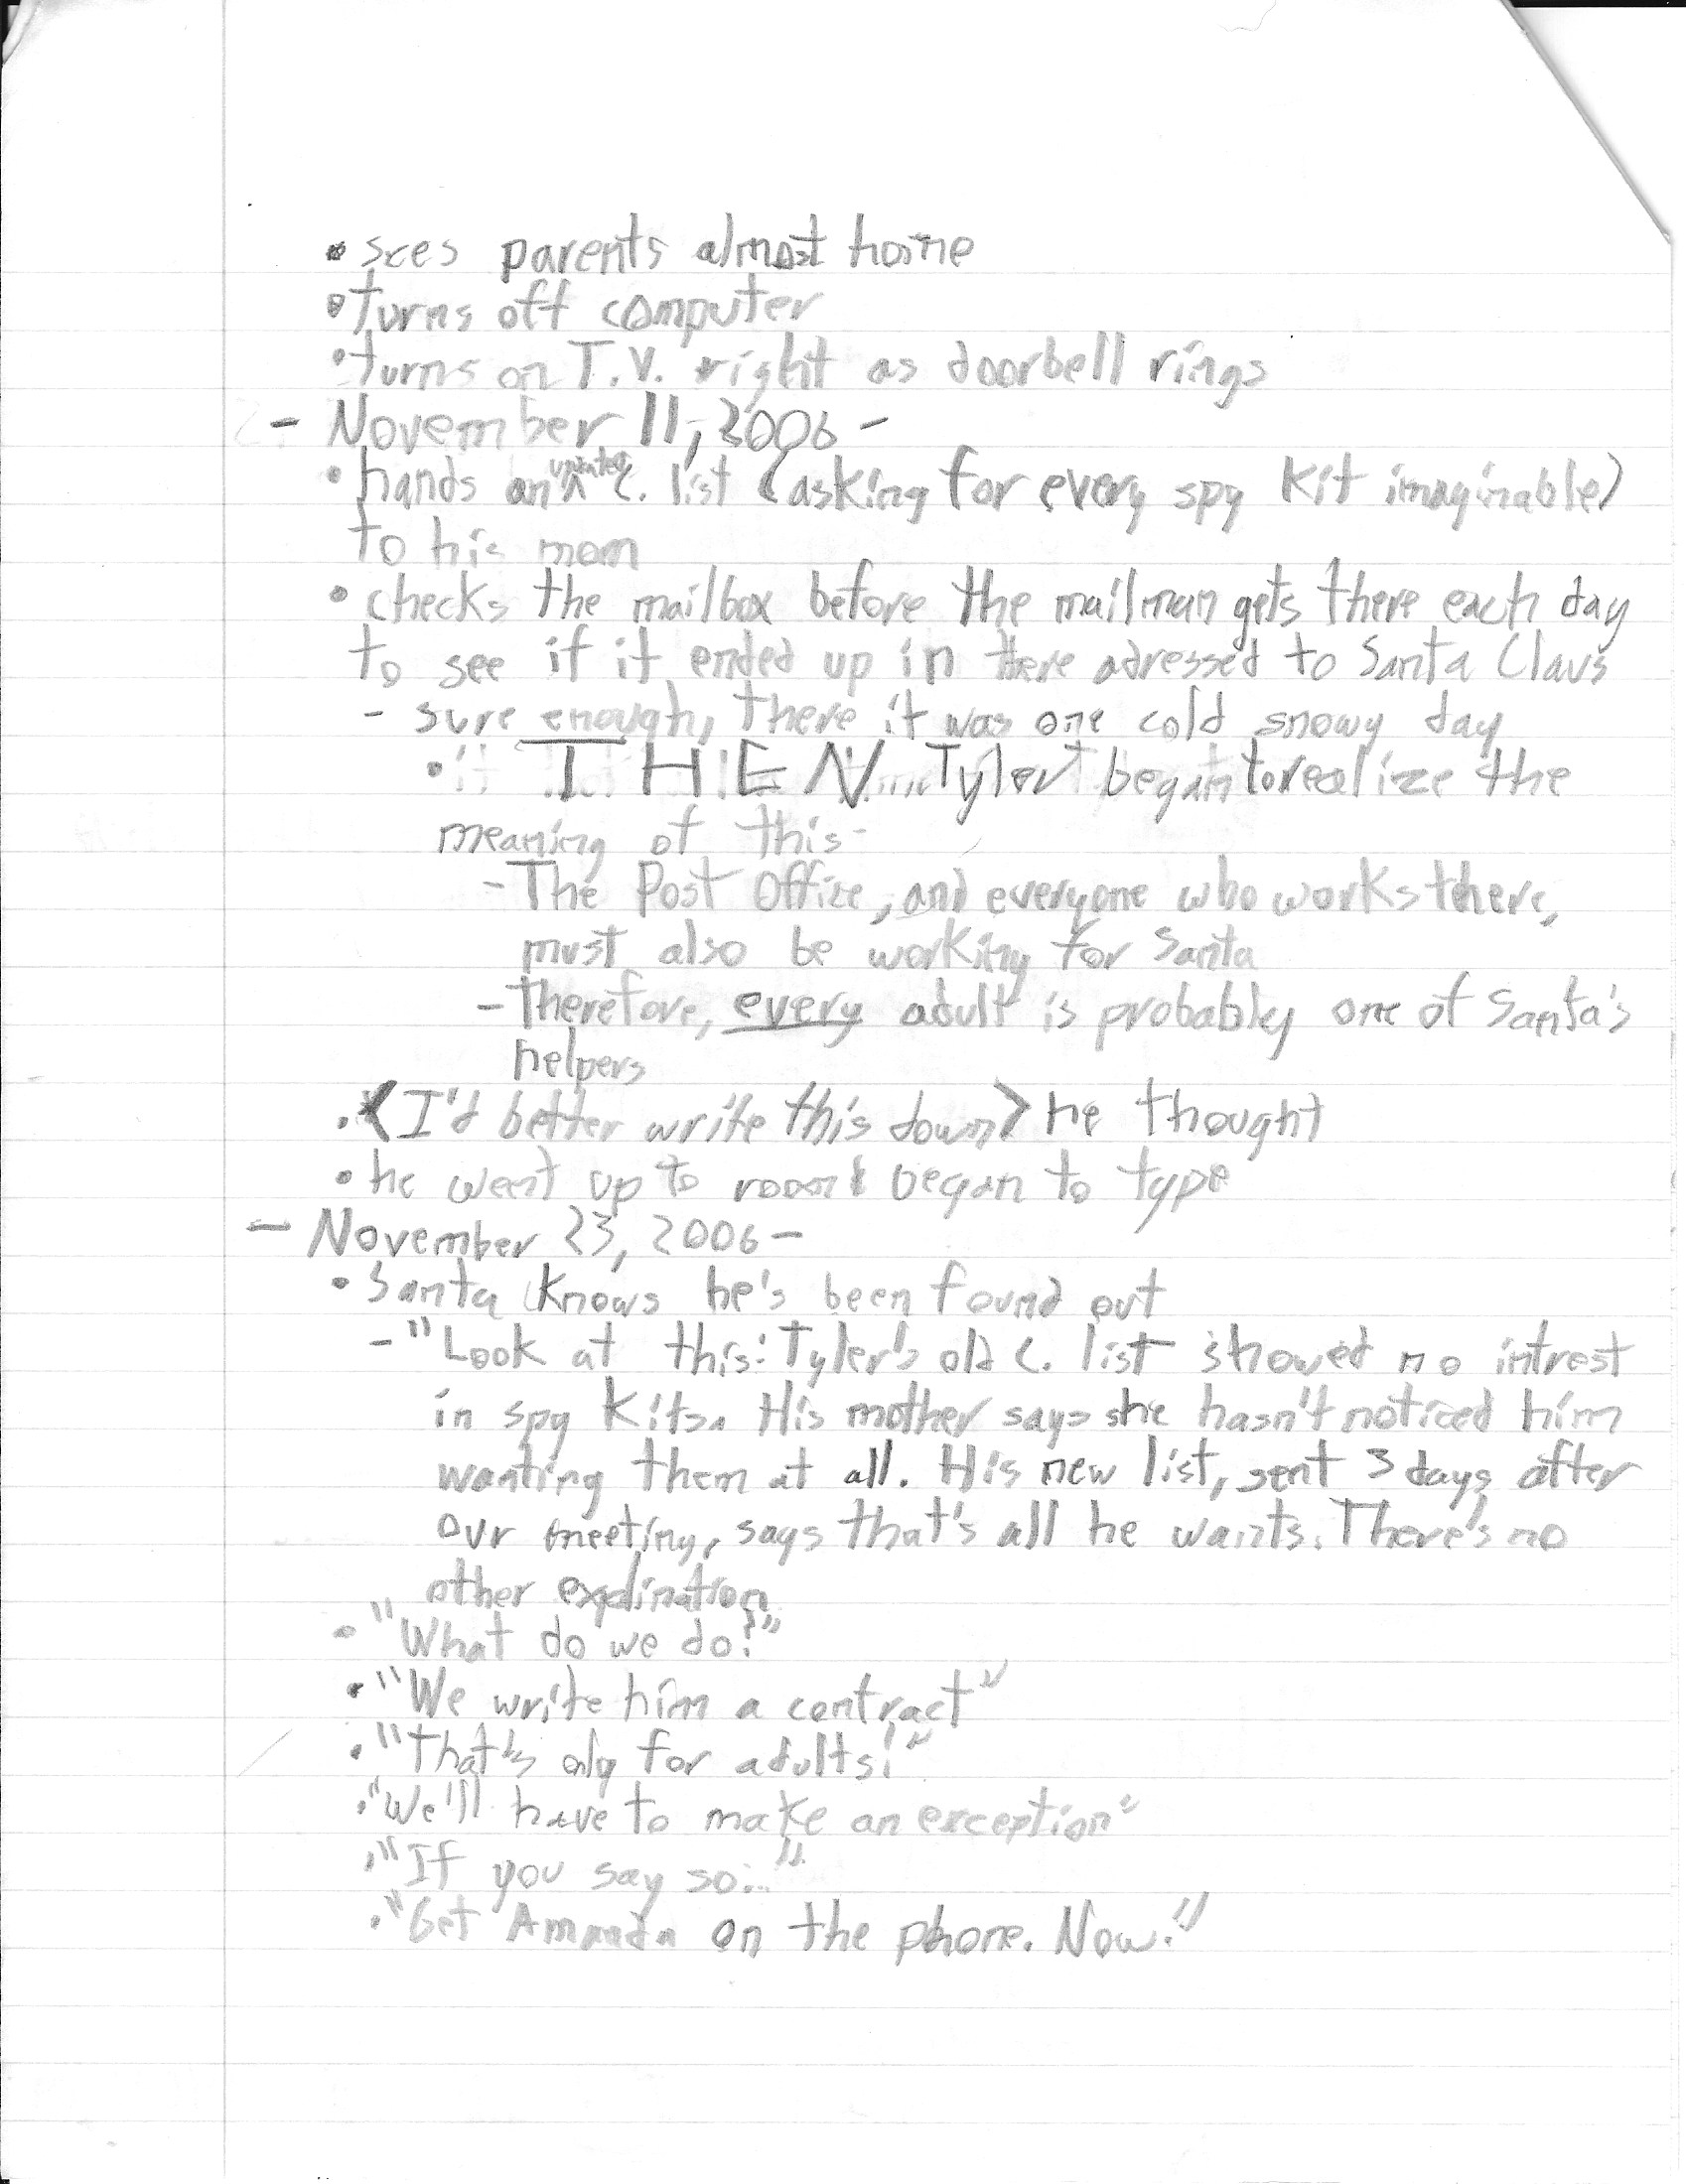 • sees parents almost home
• turns off computer
• turns on T.V. right as doorbell rings
- November 11, 2006 -
• hands an ^updated C. list (asking for every spy kit imaginable)
to his mom
• checks the mailbox before the mailman gets there each day
to see if it ended up in there adressed to Santa Claus
- sure enough, there it was one cold snowy day
• THEN.... Tyler began to realize the
meaning of this-
- The Post Office, and everyone who works there,
must also be working for Santa
- Therefore, every adult is probably one of Santa's
helpers
• <I'd better write this down> he thought
• he went up to room & began to type
- November 23, 2006 -
• Santa knows he's been found out
- "Look at this: Tyler's old C. list showed no intrest
in spy kits. His mother says she hasn't noticed him
wanting them at all. His new list, sent 3 days after
our meeting, says that's all he wants. There's no
other explination
• "What do we do?"
• "We write him a contract"
• "That's only for adults!"
• "We'll have to make an exception"
• "If you say so..."
• "Get Amanda on the phone. Now!"